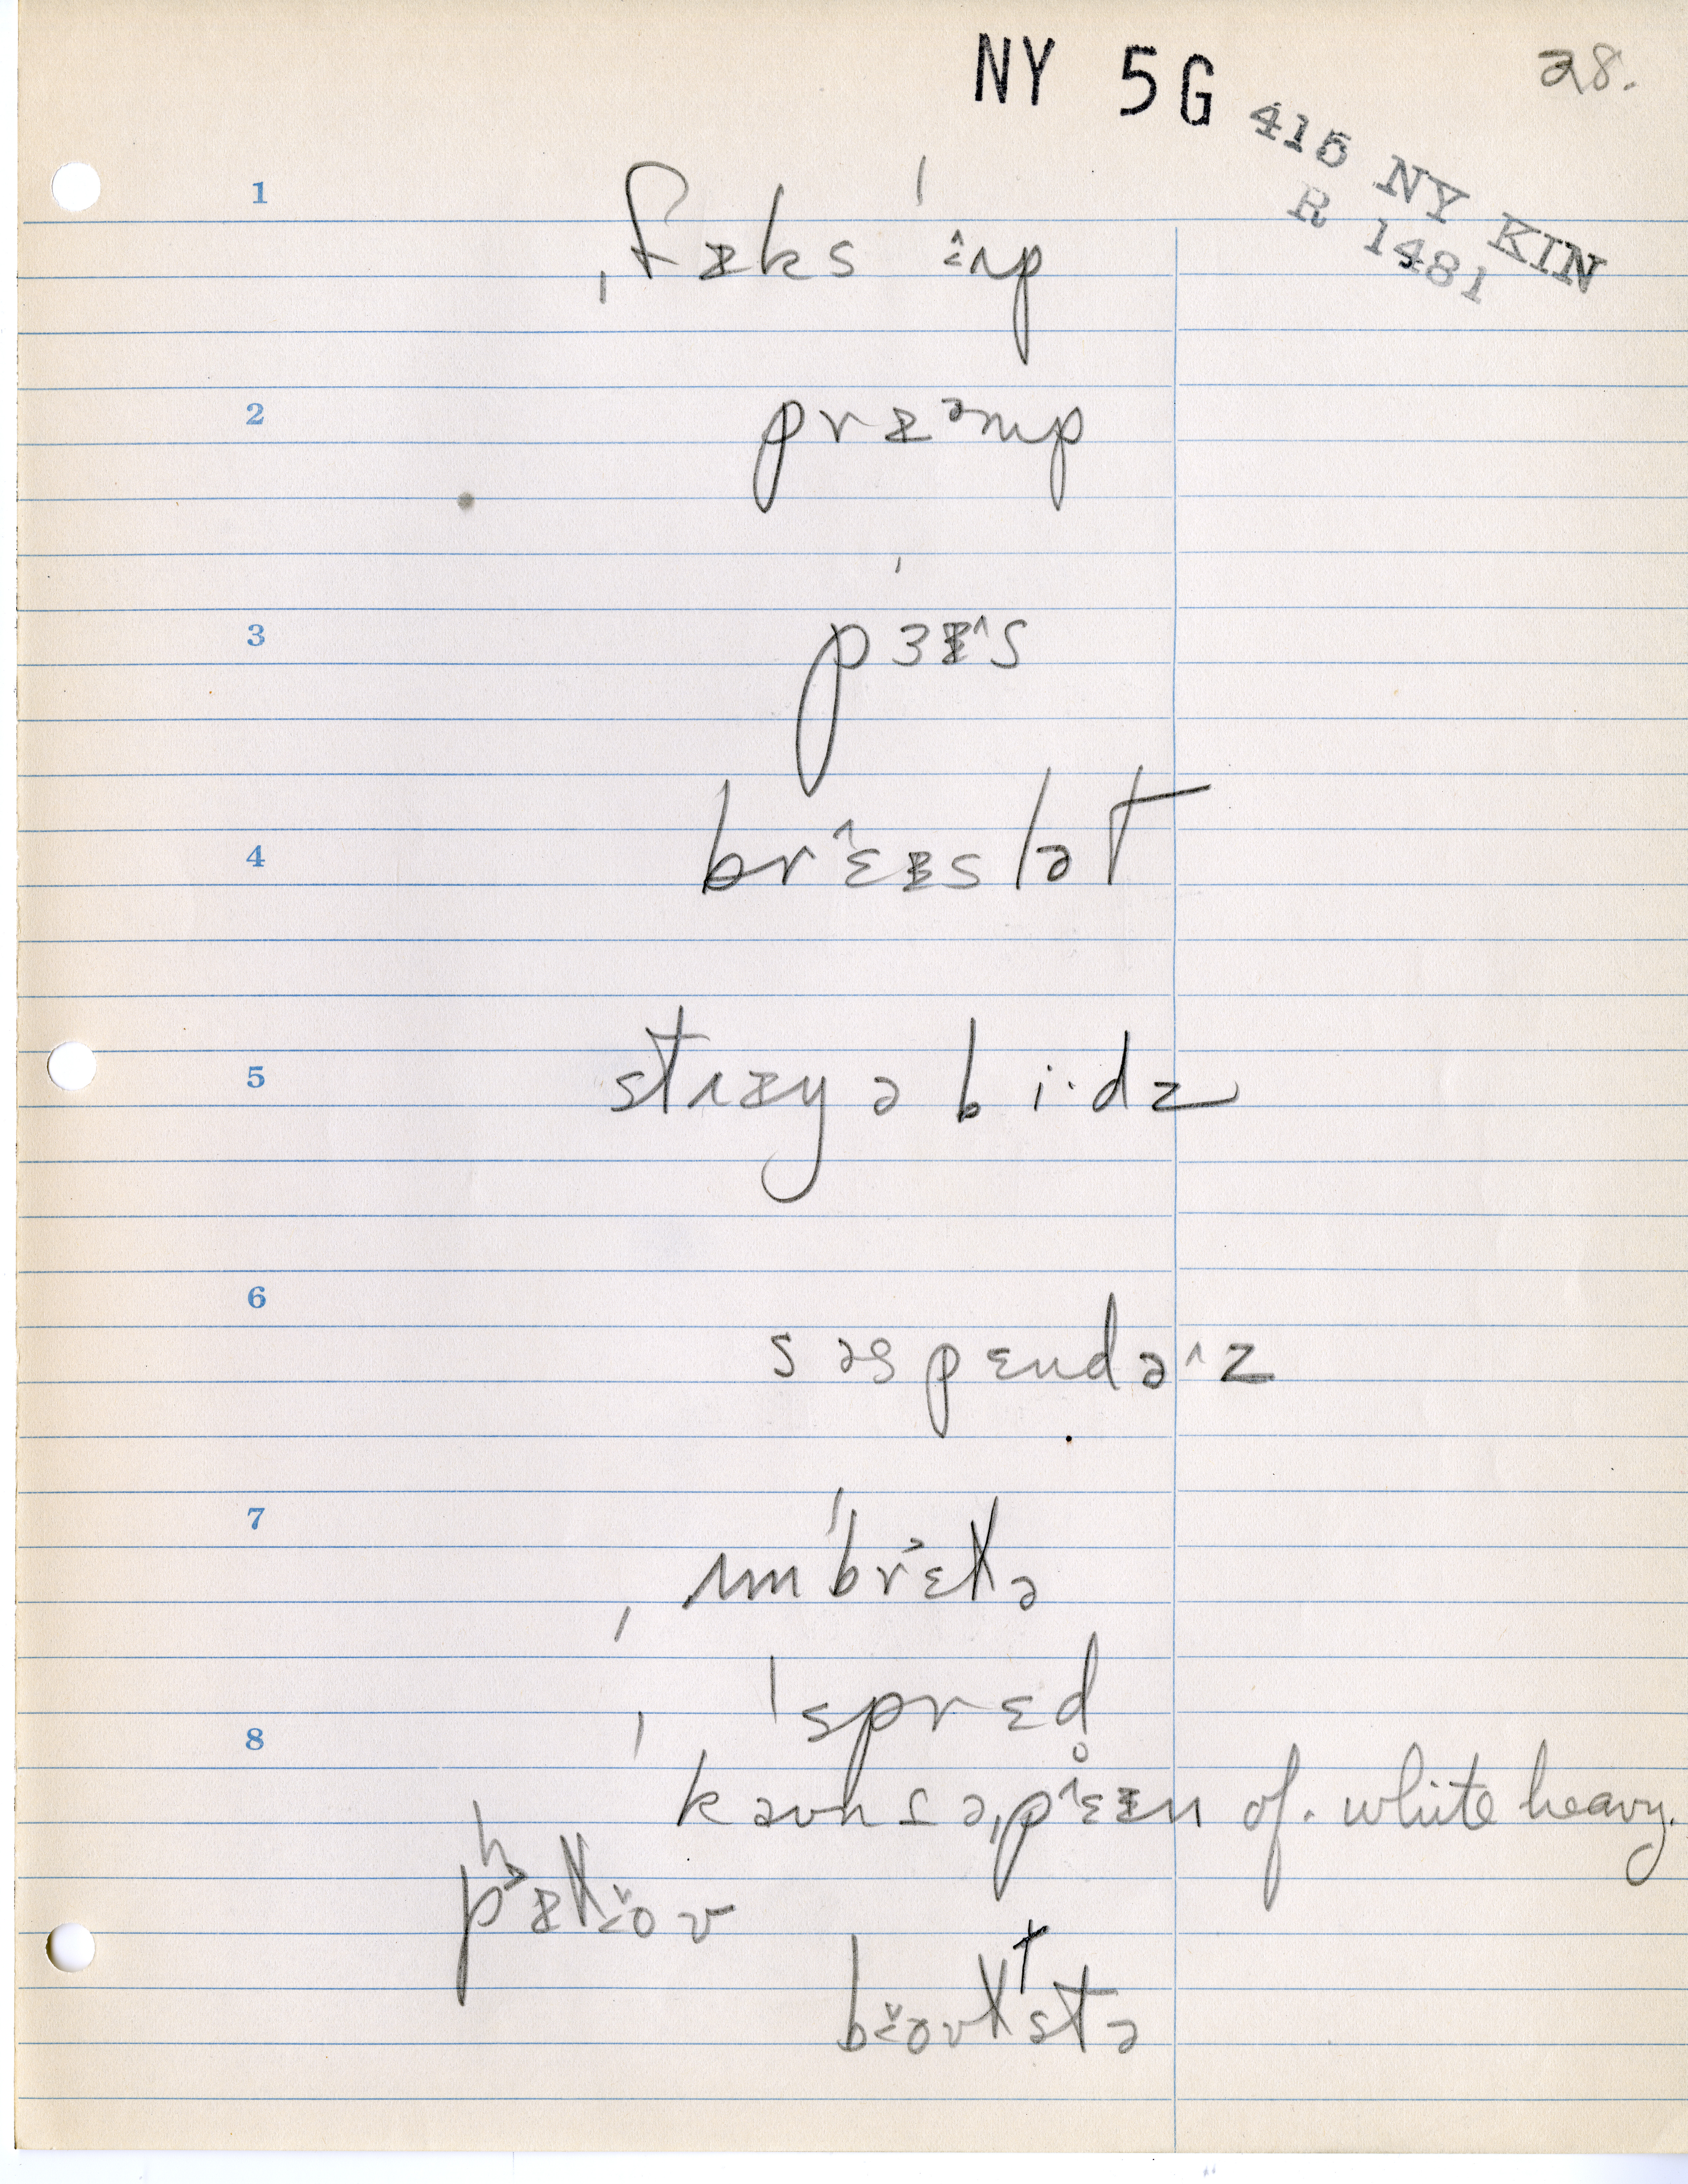 NY 5G
28.
415 NY KIN
R 1481
1
ˌfɪks ˈʌp
2
prɪᵊmp
3
pɜɪ˄s
4
brɛɪslət
5
strɪŋ ə b i·dz
6
s əspɛndə˄z
7
ˌʌmˈbrɛɫə
ˌ ˈsprɛd
8
kaʊnɾəˌpɛɪn of. white heavy.
pʰɪɫoʊ
boʊɫstə